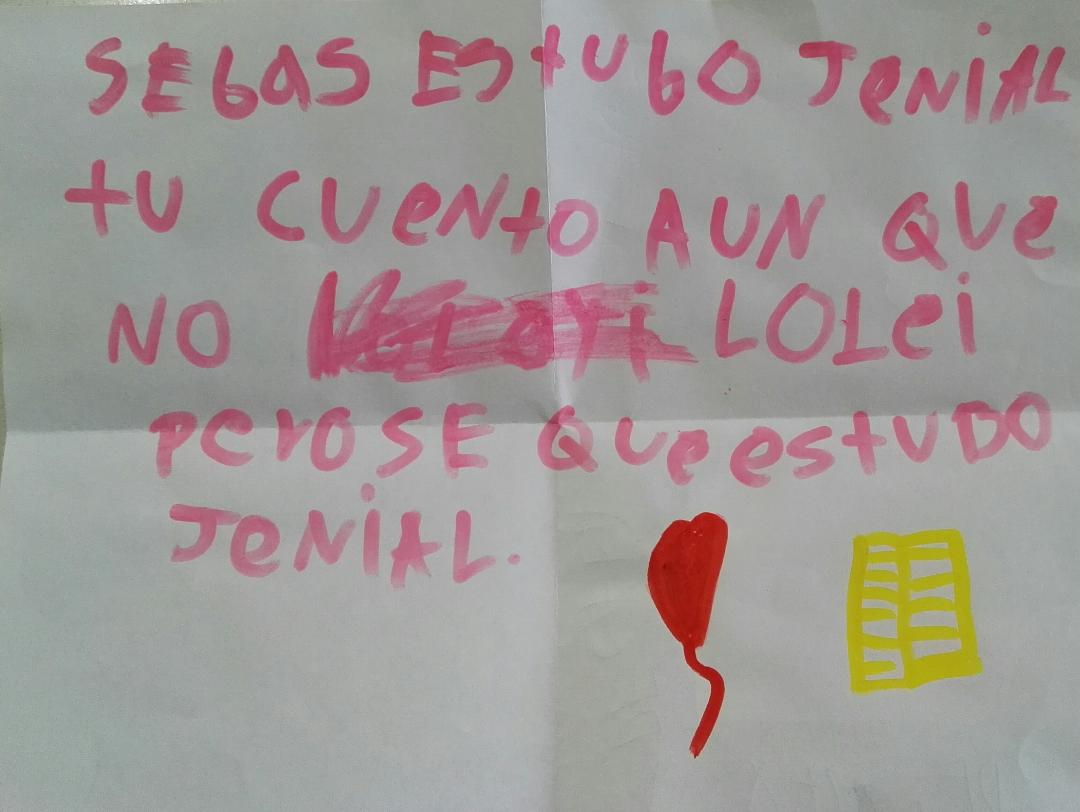 SEbas EStubO JeNiAL
tU CUeNtO AUN QUe
NO LOLei
perO SE QUe estUDO
JeNiAL.